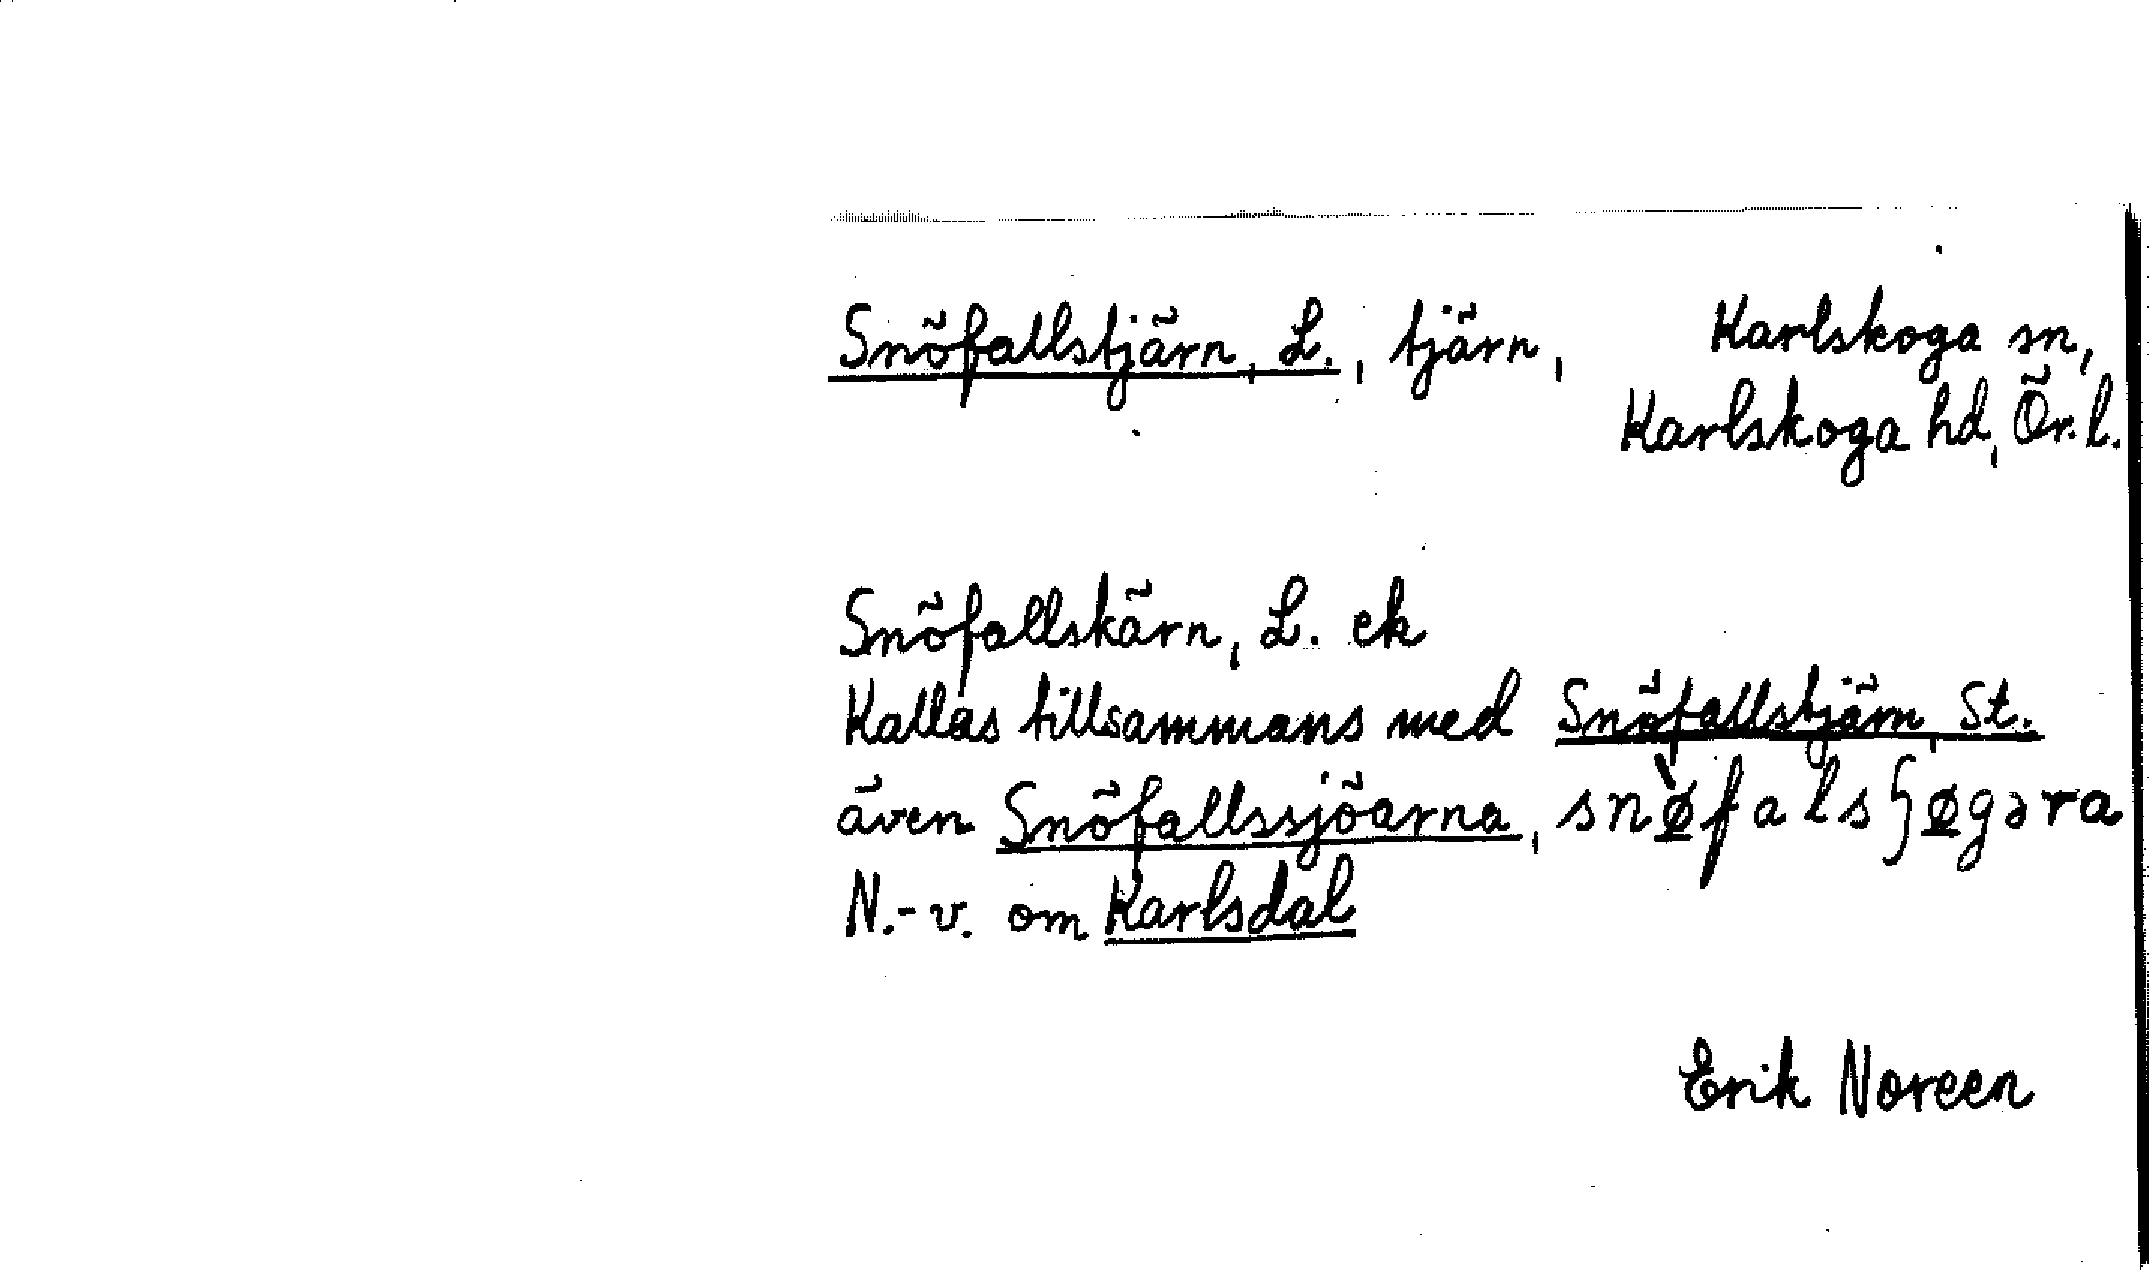 Snöfallstjärn, L., tjärn, Karlskoga sn,
Karlskoga hd, Ör. l.
Snöfallskärn, L. ek
Kallas tillsammans med Snöfallstjärn, St.
även Snöfallssjöarna, snø̀falsʃøgəra
N.-v. om Karlsdal
Erik Noreen